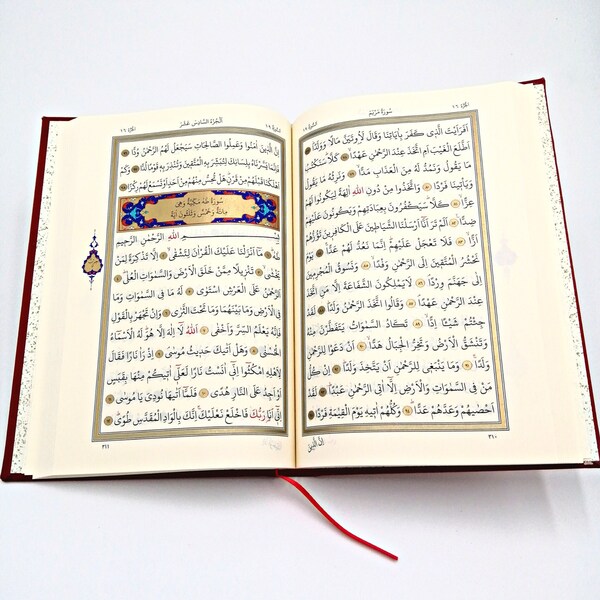 سُورَةُ مَرْيَمَ
اَفَرَاَيْتَ الَّذ۪ي كَفَرَ بِاٰيَاتِنَا وَقَالَ لَاُو۫تَيَنَّ مَالًا وَوَلَدًاۜ ﴿٧٧﴾
اَطَّلَعَ الْغَيْبَ اَمِ اتَّخَذَ عِنْدَ الرَّحْمٰنِ عَهْدًاۙ ﴿٧٨﴾ كَلَّاۜ سَنَكْتُبُ
مَا يَقُولُ وَنَمُدُّ لَهُ مِنَ الْعَذَابِ مَدًّاۙ ﴿٧٩﴾ وَنَرِثُهُ مَا يَقُولُ
وَيَأْت۪ينَا فَرْدًا ﴿٨٠﴾ وَاتَّخَذُوا مِنْ دُونِ اللّٰهِ اٰلِهَةً لِيَكُونُوا لَهُمْ
عِزًّاۙ ﴿٨١﴾ كَلَّاۜ سَيَكْفُرُونَ بِعِبَادَتِهِمْ وَيَكُونُونَ عَلَيْهِمْ
ضِدًّا۟ ﴿٨٢﴾ اَلَمْ تَرَ اَنَّٓا اَرْسَلْنَا الشَّيَاط۪ينَ عَلَى الْكَافِر۪ينَ تَؤُزُّهُمْ
اَزًّاۙ ﴿٨٣﴾ فَلَا تَعْجَلْ عَلَيْهِمْۜ اِنَّمَا نَعُدُّ لَهُمْ عَدًّاۚ ﴿٨٤﴾ يَوْمَ
نَحْشُرُ الْمُتَّق۪ينَ اِلَى الرَّحْمٰنِ وَفْدًاۙ ﴿٨٥﴾ وَنَسُوقُ الْمُجْرِم۪ينَ
اِلٰى جَهَنَّمَ وِرْدًاۢ ﴿٨٦﴾ لَا يَمْلِكُونَ الشَّفَاعَةَ اِلَّا مَنِ اتَّخَذَ
عِنْدَ الرَّحْمٰنِ عَهْدًاۢ ﴿٨٧﴾ وَقَالُوا اتَّخَذَ الرَّحْمٰنُ وَلَدًاۜ ﴿٨٨﴾ لَقَدْ
جِئْتُمْ شَيْـًٔا اِدًّاۙ ﴿٨٩﴾ تَكَادُ السَّمٰوَاتُ يَتَفَطَّرْنَ مِنْهُ
وَتَنْشَقُّ الْاَرْضُ وَتَخِرُّ الْجِبَالُ هَدًّاۙ ﴿٩٠﴾ اَنْ دَعَوْا لِلرَّحْمٰنِ
وَلَدًاۚ ﴿٩١﴾ وَمَا يَنْبَغ۪ي لِلرَّحْمٰنِ اَنْ يَتَّخِذَ وَلَدًاۜ ﴿٩٢﴾ اِنْ كُلُّ
مَنْ فِي السَّمٰوَاتِ وَالْاَرْضِ اِلَّٓا اٰتِي الرَّحْمٰنِ عَبْدًاۜ ﴿٩٣﴾ لَقَدْ
اَحْصٰيهُمْ وَعَدَّهُمْ عَدًّاۜ ﴿٩٤﴾ وَكُلُّهُمْ اٰت۪يهِ يَوْمَ الْقِيٰمَةِ فَرْدًا ﴿٩٥﴾
اِنَّ الَّذ۪ينَ
٣١٠
اَلْجُزْءُ السَّادِسَ عَشَرَ
اِنَّ الَّذ۪ينَ اٰمَنُوا وَعَمِلُوا الصَّالِحَاتِ سَيَجْعَلُ لَهُمُ الرَّحْمٰنُ وُدًّا ﴿٩٦﴾
فَاِنَّمَا يَسَّرْنَاهُ بِلِسَانِكَ لِتُبَشِّرَ بِهِ الْمُتَّق۪ينَ وَتُنْذِرَ بِه۪ قَوْمًا لُدًّا ﴿٩٧﴾ وَكَمْ
اَهْلَكْنَا قَبْلَهُمْ مِنْ قَرْنٍۜ هَلْ تُحِسُّ مِنْهُمْ مِنْ اَحَدٍ اَوْ تَسْمَعُ لَهُمْ رِكْزًا ﴿٩٨﴾
سُورَةُ طٰهٰ مَكِّيَّةٌ وَهِيَ
مِائَةٌ وَخَمْسٌ وَثَلَاثُونَ اٰيَةً
بِسْمِ اللّٰهِ الرَّحْمٰنِ الرَّح۪يمِ
طٰهٰ ﴿١﴾ مَٓا اَنْزَلْنَا عَلَيْكَ الْقُرْاٰنَ لِتَشْقٰىۙ ﴿٢﴾ اِلَّا تَذْكِرَةً لِمَنْ
يَخْشٰىۙ ﴿٣﴾ تَنْز۪يلًا مِمَّنْ خَلَقَ الْاَرْضَ وَالسَّمٰوَاتِ الْعُلٰىۜ ﴿٤﴾
اَلرَّحْمٰنُ عَلَى الْعَرْشِ اسْتَوٰى ﴿٥﴾ لَهُ مَا فِي السَّمٰوَاتِ وَمَا
فِي الْاَرْضِ وَمَا بَيْنَهُمَا وَمَا تَحْتَ الثَّرٰى ﴿٦﴾ وَاِنْ تَجْهَرْ بِالْقَوْلِ
فَاِنَّهُ يَعْلَمُ السِّرَّ وَاَخْفٰى ﴿٧﴾ اَللّٰهُ لَٓا اِلٰهَ اِلَّا هُوَۜ لَهُ الْاَسْمَٓاءُ
الْحُسْنٰى ﴿٨﴾ وَهَلْ اَتٰيكَ حَد۪يثُ مُوسٰىۢ ﴿٩﴾ اِذْ رَاٰ نَارًا فَقَالَ
لِاَهْلِهِ امْكُثُٓوا اِنّ۪ٓي اٰنَسْتُ نَارًا لَعَلّ۪ٓي اٰت۪يكُمْ مِنْهَا بِقَبَسٍ
اَوْ اَجِدُ عَلَى النَّارِ هُدًى ﴿١٠﴾ فَلَمَّٓا اَتٰيهَا نُودِيَ يَا مُوسٰى ﴿١١﴾
اِنّ۪ٓي اَنَا۬ رَبُّكَ فَاخْلَعْ نَعْلَيْكَۚ اِنَّكَ بِالْوَادِ الْمُقَدَّسِ طُوًىۜ ﴿١٢﴾
٣١١